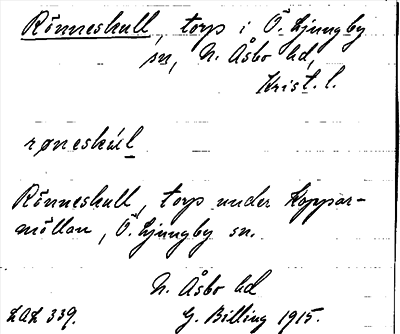 Rönneskull, torp i Ö. Ljungby
sn, N. Åsbo hd,
Krist. l.
røneskúl
Rönneskull, torp under Koppar-
möllan, Ö. Ljungby sn.
N. Åsbo hd
LAL 339. G. Billing 1915.